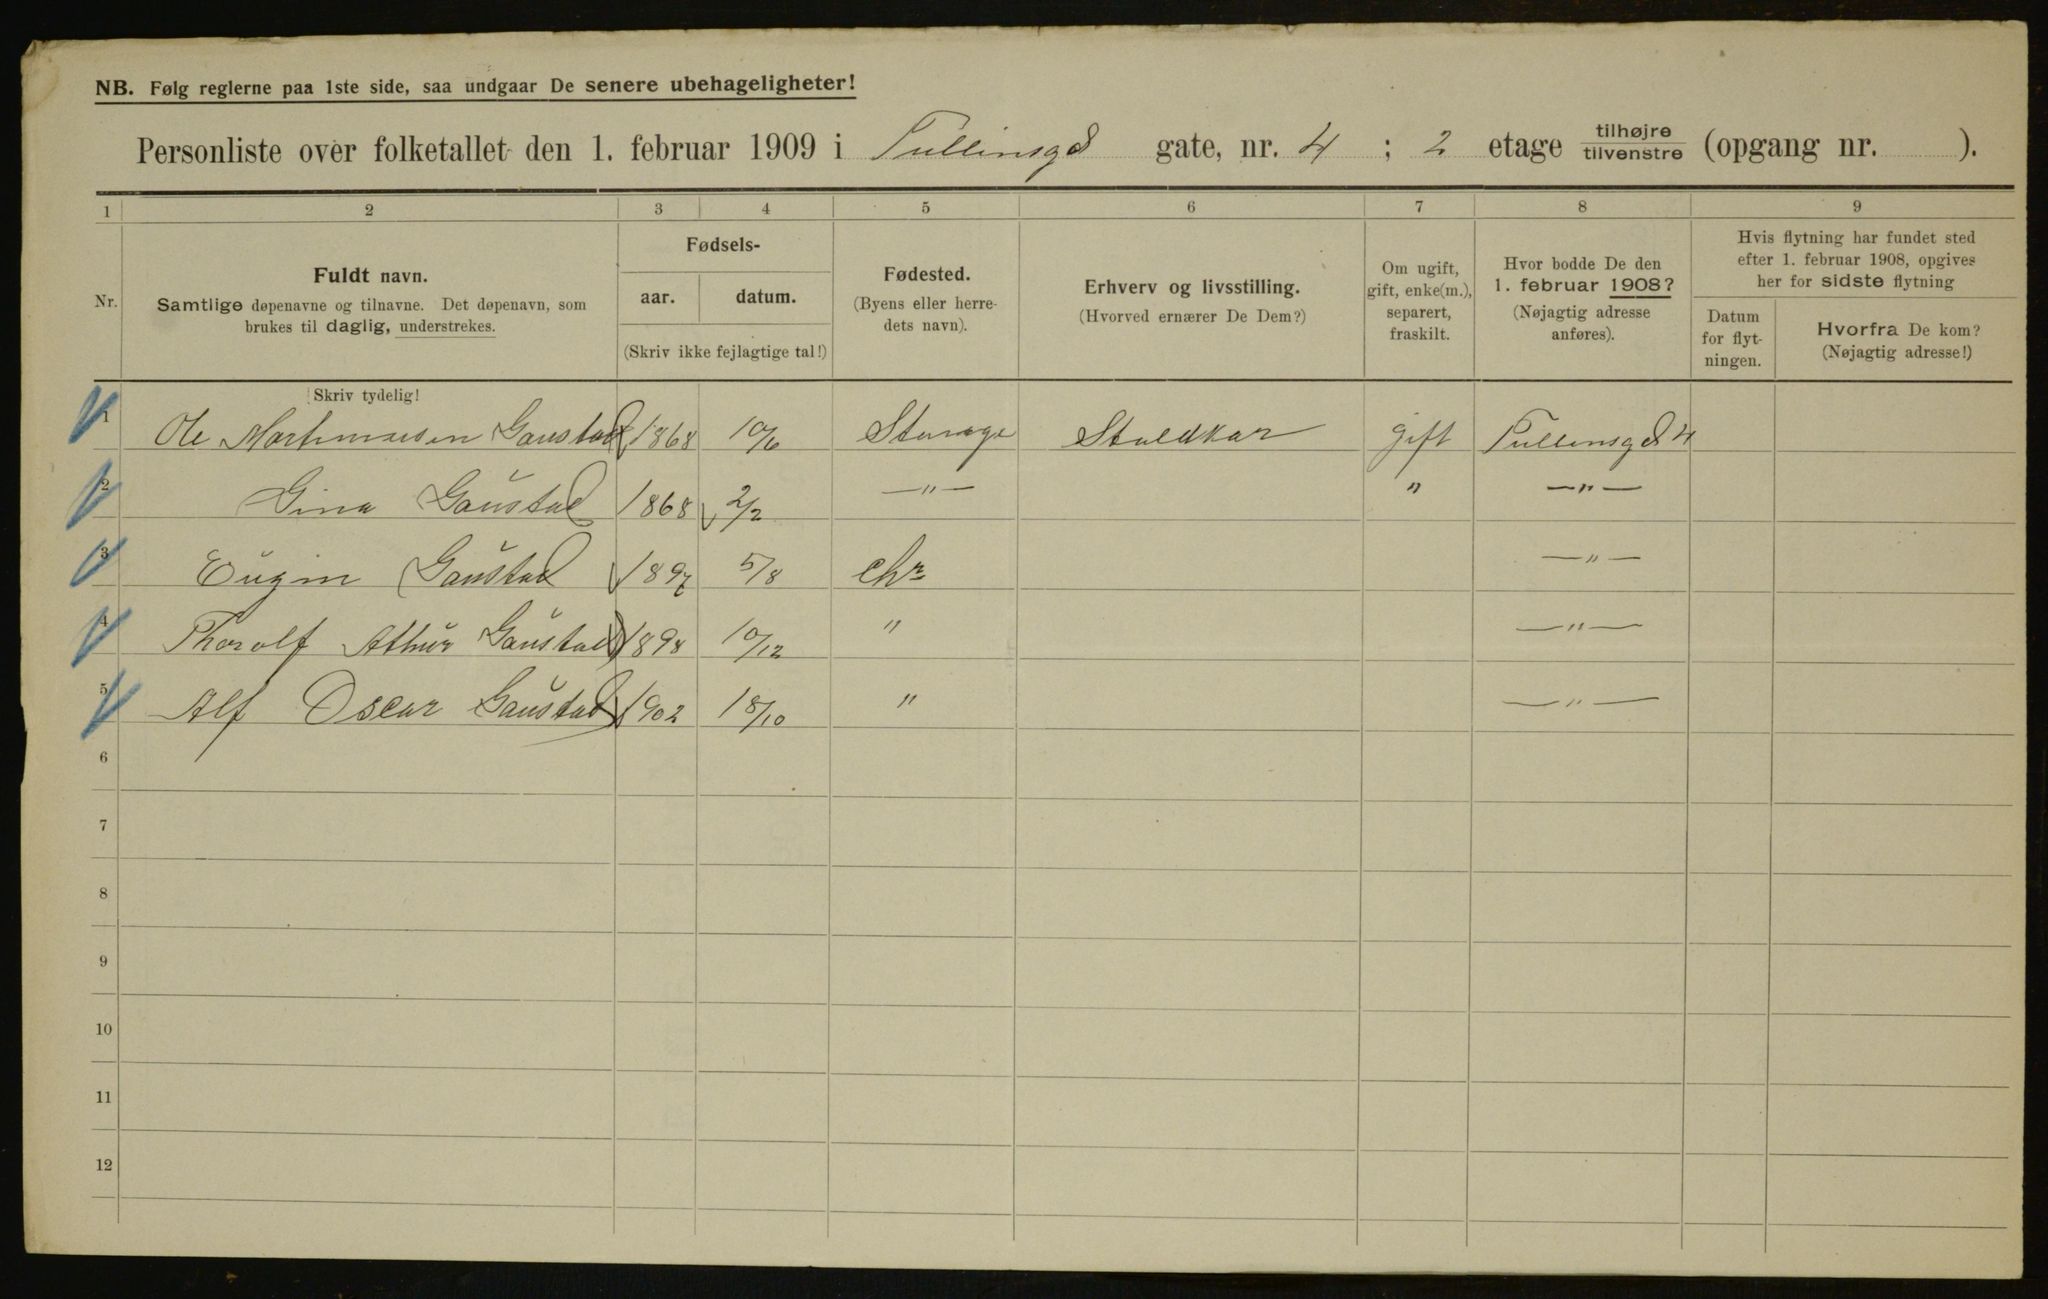 NB. Følg reglerne paa 1ste side, saa undgaar De senere ubehageligheter!
Personliste over folketallet den 1. februar 1909 i Tullinsgd gate, nr. 4 ; 2 etage tilhøjre tilvenstre (opgang nr. ).
1 2 3 4 5 6 7 8 9
Nr.
Fuldt navn.
Samtlige døpenavne og tilnavne. Det døpenavn, som
brukes til daglig, understrekes.
Fødsels-
aar. datum.
(Skriv ikke fejlagtige tal!)
Fødested.
(Byens eller herre-
dets navn).
Erhverv og livsstilling.
(Hvorved ernærer De Dem?)
Om ugift,
gift, enke(m.),
separert,
fraskilt.
Hvor bodde De den
1. februar 1908?
(Nøjagtig adresse
anføres).
Hvis flytning har fundet sted
efter 1. februar 1908, opgives
her for sidste flytning
Datum
for flyt-
ningen.
Hvorfra De kom?
(Nøjagtig adresse!)
Skriv tydelig!
1 Ole Gaustad 1868 10/6 Stange Staldkar gift Tullinsgd 4
2 Gina Gaustad 1868 2/2 —"— " —"—
3 Eugin Gaustad 1897 5/8 Chr. —"—
4 Thorolf Athur Gaustad 1898 10/12 " —"—
5 Alf Oscar Gaustad 1902 18/10 " —"—
6
7
8
9
10
11
12